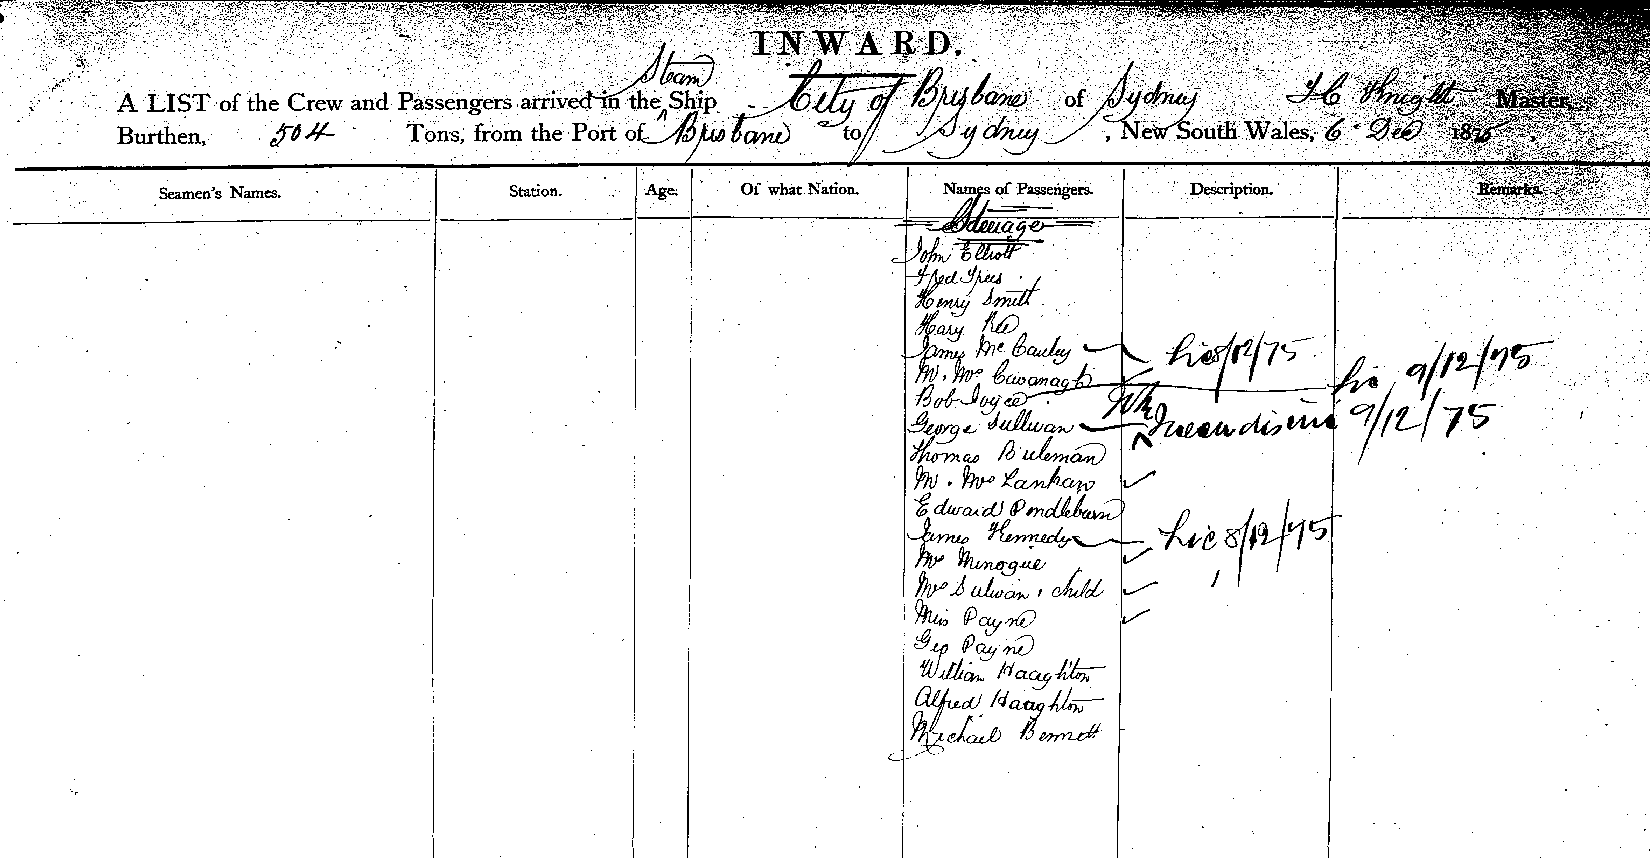 INWARD.
Steam
A LIST of the Crew and Passengers arrived in the ^ Ship City of Brisbane of Sydney T C Knight Master,
Burthen, 504 Tons, from the Port of Brisbane to Sydney, New South Wales, 6 Dec 1875.
Seamen's Names. Station. Age. Of what Nation. Names of Passengers. Description. Remarks.
Steerage
John Elliott
Fred
Henry Smith
Lic 8/12/75
James McCauley
M. Mrs Cavanagh
Lic 9/12/75
Bob Joyce
George Sullivan 9/12/75
Thomas
M. Mrs Lanhan
Edward
James Kennedy Lic 8/12/75
Minogue
Mrs Sulivan & child
Miss Payne
Geo Payne
William Haaghton
Alfred Haaghton
Michael Bennett